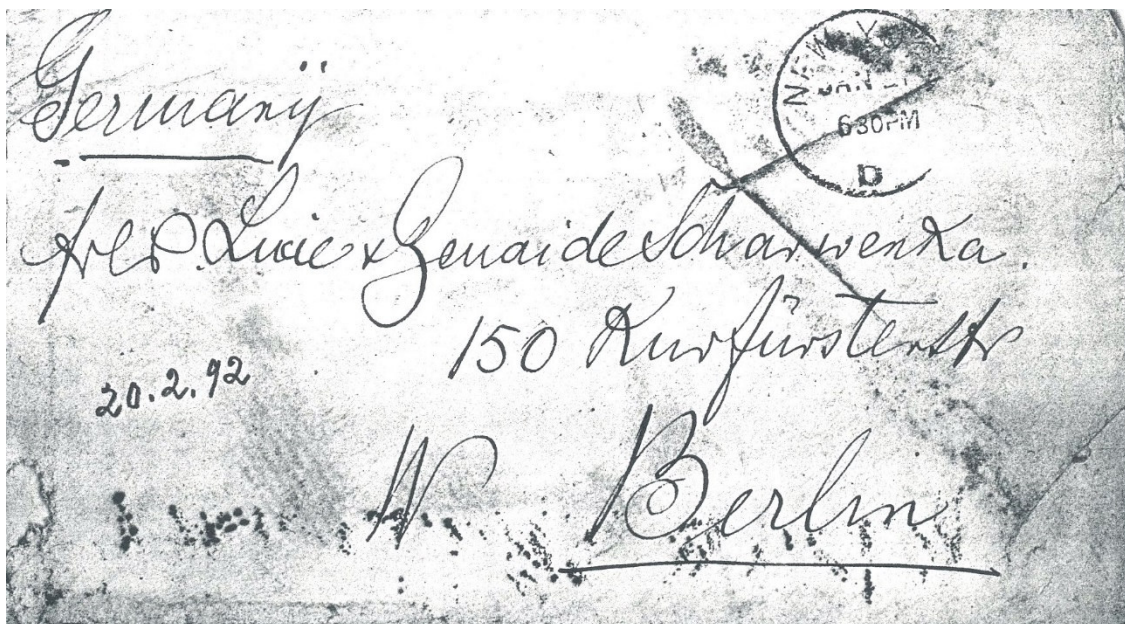 Germany
NEW YO
JAN
630PM
D
Lucie & Zenaide Scharwenka.
150 Kurfürstenstr
20.2.92
W Berlin